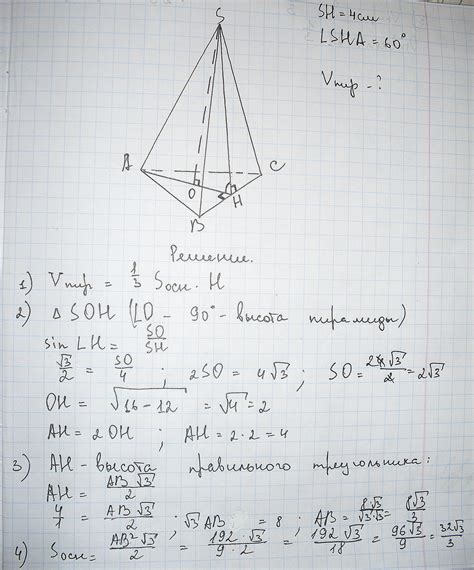 S
SH = 4см
∠SHA = 60°
Vпир - ?
A
C
O
H
B
Решение.
1) Vпир = 1/3 Sосн. H
2) Δ SOH (∠O - 90° - высота пирамиды)
sin ∠H = SO/SH
√3/2 = SO/4 ; 2SO = 4√3 ; SO = 2·√3/2 = 2√3
OH = √(16-12) = √4 = 2
AH = 2OH ; AH = 2·2 = 4
3) AH - высота правильного треугольника:
AH = AB√3/2
4/1 = AB√3/2 ; √3 AB = 8 ; AB = 8√3/√3·√3 = 8√3/3
4) Sосн = AB²√3/2 = 192·√3/9·2 = 192√3/18 = 96√3/9 = 32√3/3